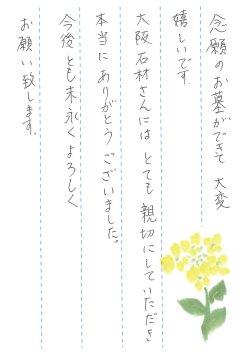 念願のお墓ができて 大変
嬉しいです.
大阪石材さんには とても 親切にしていただき
本当にありがとうございました。
今後とも末永くよろしく
お願い致します.